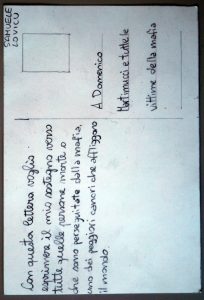 Con questa lettera voglio
esprimere il mio sostegno verso
tutte quelle persone morte o
che sono perseguitate dalla mafia,
uno dei peggiori cancri che affliggono
il mondo.
SAMUELE
LOVICU
A Domenico
Martimucci e tutte le
vittime della mafia